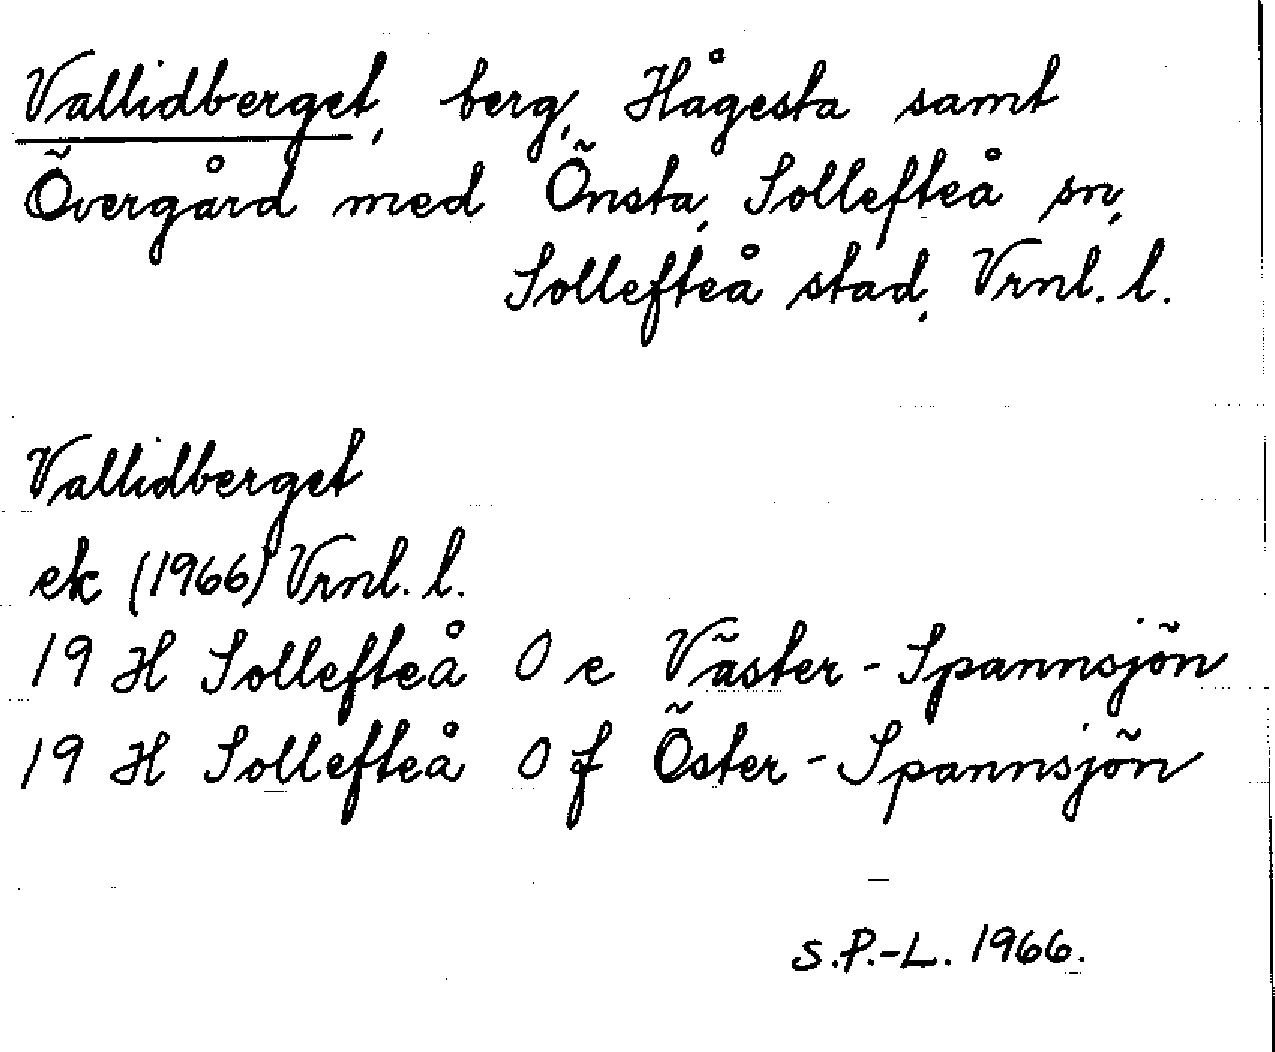 Vallidberget, berg, Hågesta samt
Övergård med Önsta, Sollefteå sn,
Sollefteå stad, Vrnl. l.
Vallidberget
ek (1966) Vrnl. l.
19 H Sollefteå 0 e Väster-Spannsjön
19 H Sollefteå 0 f Öster-Spannsjön
S.P.-L. 1966.